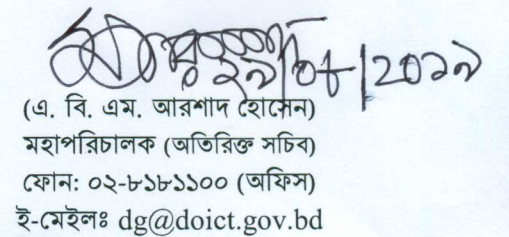 (এ. বি. এম. আরশাদ হোসেন)
মহাপরিচালক (অতিরিক্ত সচিব)
ফোন: ০২-৮১৮১১০০ (অফিস)
ই-মেইলঃ dg@doict.gov.bd